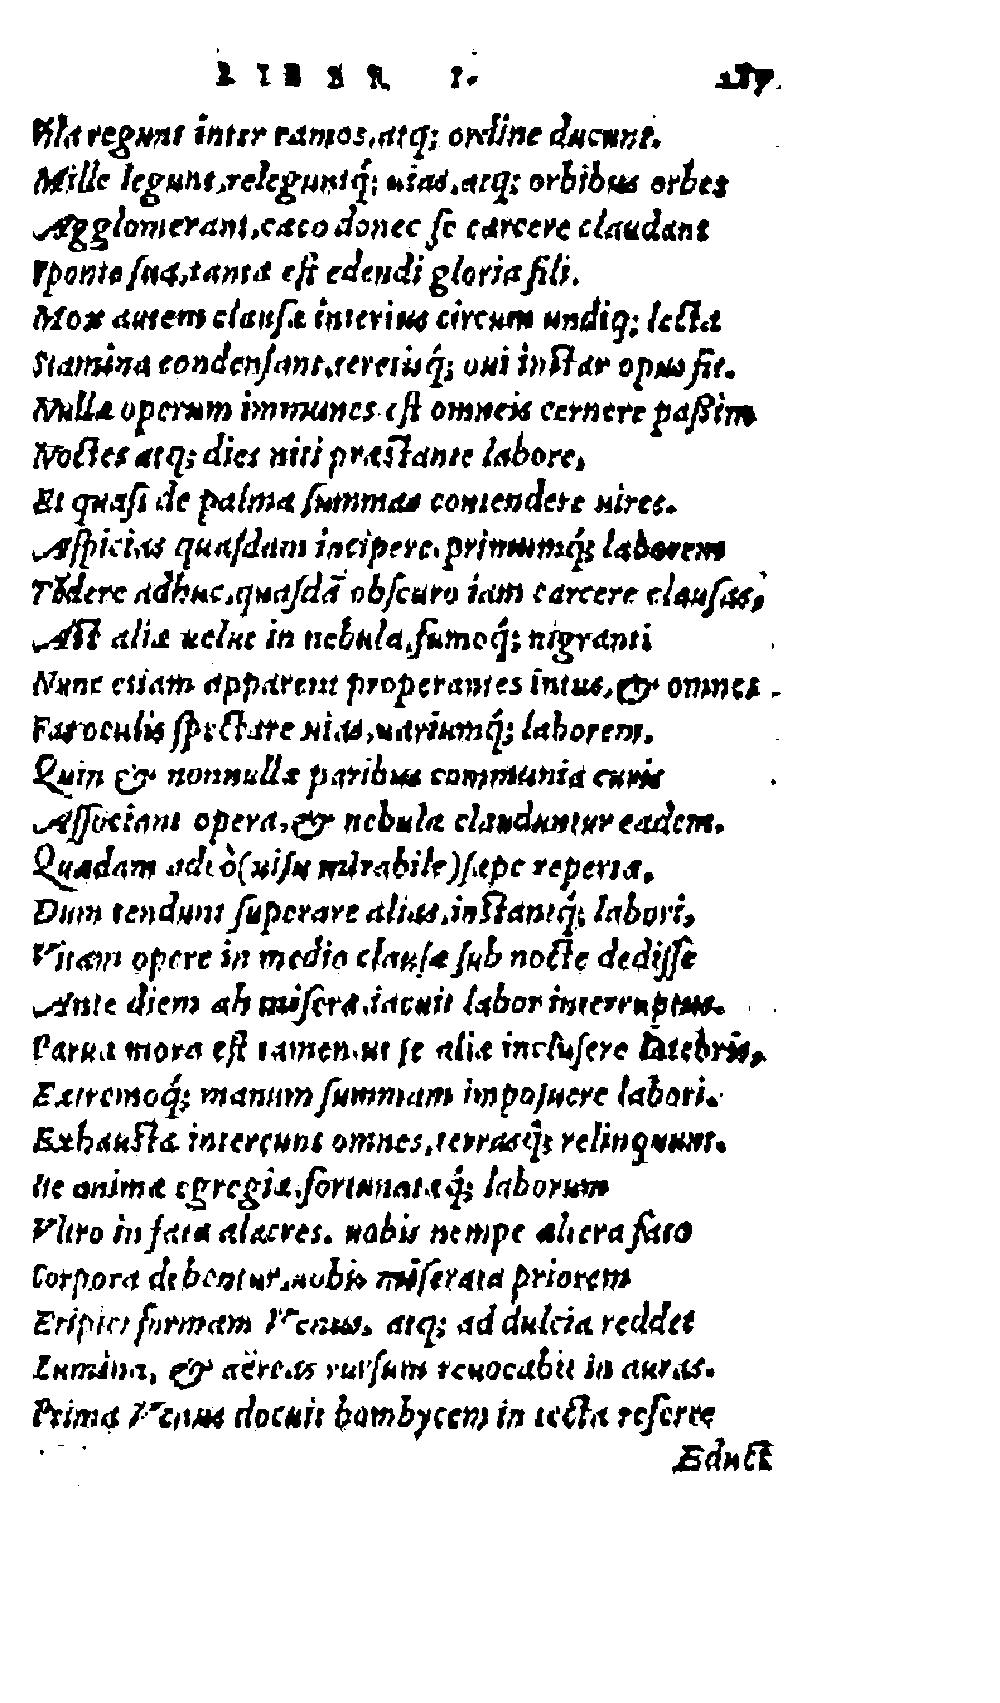 LIBER I.
Fila regunt inter ramos, atq; ordine ducunt.
Mille legunt, releguntq́; uias, atq; orbibus orbes
Agglomerant, cæco donec se carcere claudant
Sponte sua, tanta est edendi gloria fili.
Mox autem clausæ interius circum undiq; lecta
Stamina condensant, teretisq́; oui instar opus fit.
Nullæ operum immunes. est omneis cernere paßim
Noctes atq; dies niti præstante labore,
Et quasi de palma summas contendere uires.
Aspicias quasdam incipere, primumq́; laborem
Tẽdere adhuc, quasdã obscuro iam carcere clausas,
Ast aliæ uelut in nebula, fumoq́; nigranti
Nunc etiam apparent properantes intus, & omnes
Fas oculis spectare uias, uariumq́; laborem.
Quin & nonnullæ paribus communia curis
Associant opera, & nebula clauduntur eadem.
Quædam adeò (uisu mirabile) sæpe reperta,
Dum tendunt superare alias, instantq́; labori,
Vitam opere in medio clausæ sub nocte dedisse
Ante diem ah misera, iacuit labor interruptus.
Parua mora est tamen, ut se aliæ inclusere latebris,
Extremoq́; manum summam imposuere labori.
Exhaustæ intereunt omnes, terrasq́; relinquunt.
Ite animæ egregiæ, fortunatæq́; laborum
Vltro in fata alacres. nobis nempe altera fato
Corpora debentur, uobis miserata priorem
Eripiet formam Venus, atq; ad dulcia reddet
Lumina, & aëreas rursum reuocabit in auras.
Prima Venus docuit bombycem in tecta referre
Educt